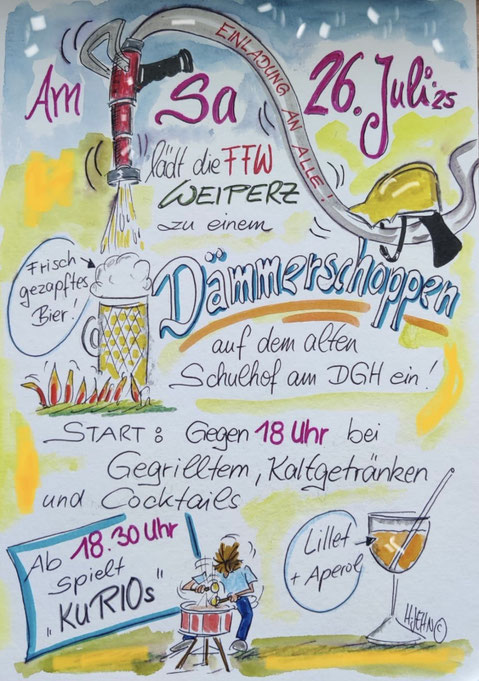 EINLADUNG AN ALLE!
Am Sa 26. Juli 25
lädt die FFW
WEIPERZ
zu einem
Dämmerschoppen
auf dem alten
Schulhof am DGH ein!
Frisch
gezapftes
Bier!
START: Gegen 18 Uhr bei
Gegrilltem, Kaltgetränken
und Cocktails
Ab 18.30 Uhr
spielt
"KuRIOs"
Lillet
+ Aperol